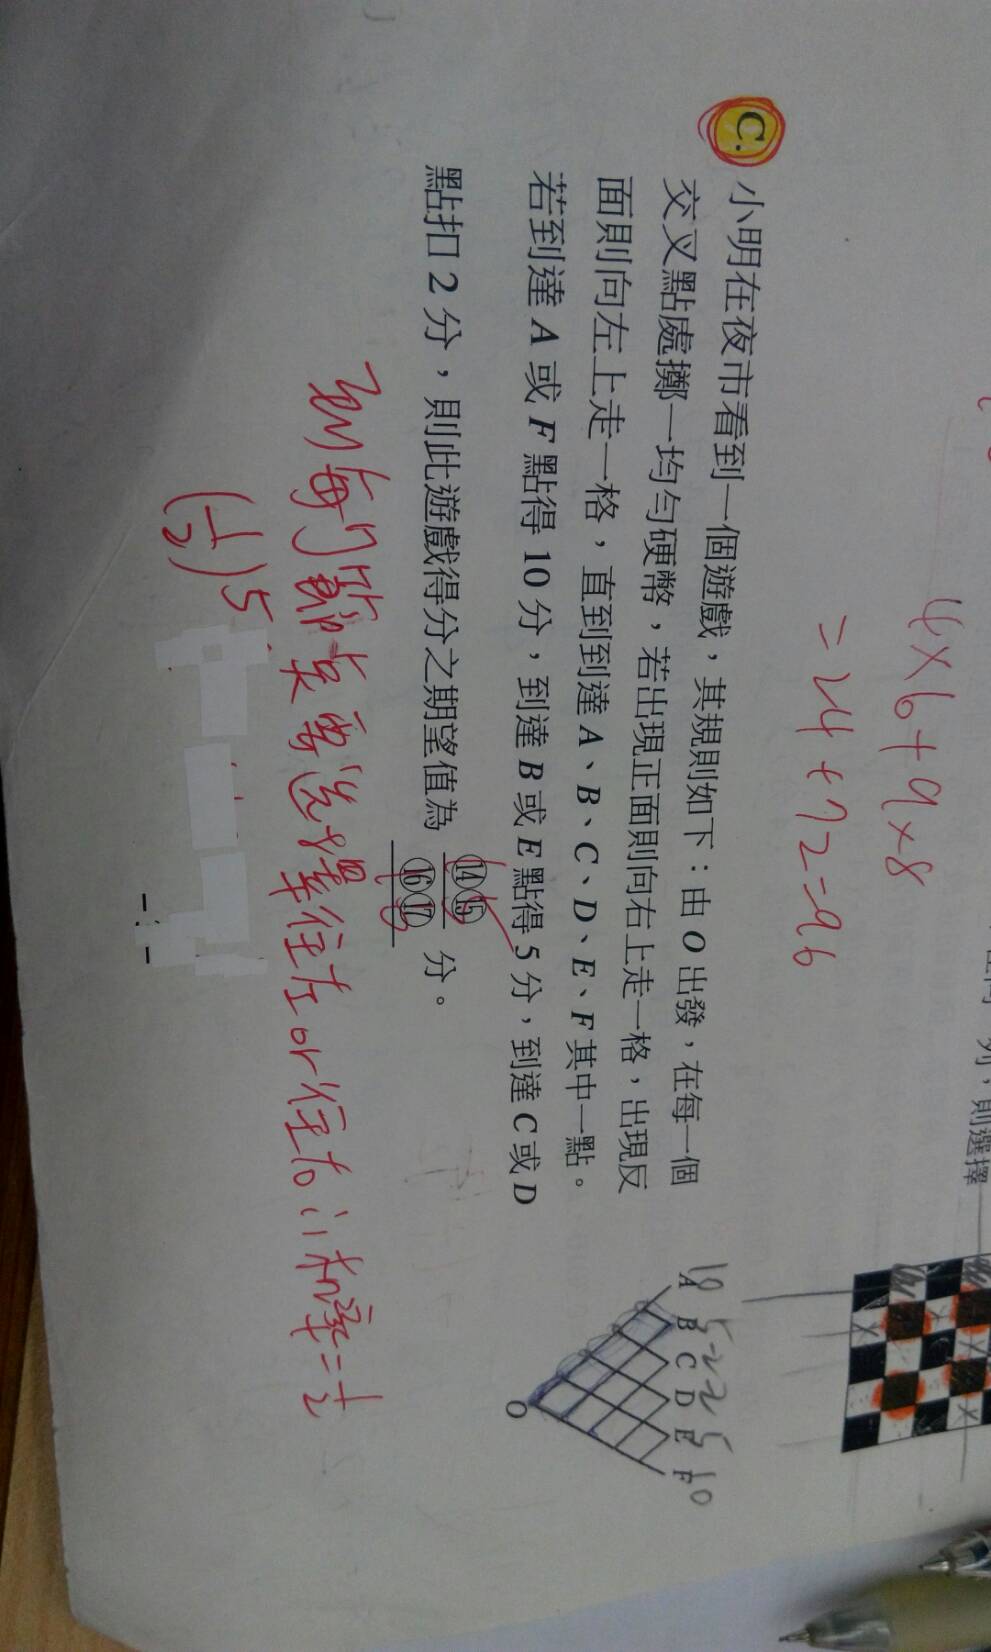 4×6+9×8
=24+72=96
列，則選擇
C.
小明在夜市看到一個遊戲，其規則如下：由 O 出發，在每一個
交叉點處擲一均勻硬幣，若出現正面則向右上走一格，出現反
面則向左上走一格，直到到達 A、B、C、D、E、F 其中一點。
若到達 A 或 F 點得 10 分，到達 B 或 E 點得 5 分，到達 C 或 D
點扣 2 分，則此遊戲得分之期望值為 ⑭⑮/⑯⑰ 分。
10 5 -2 -2 5 10
A B C D E F
O
到每個節点要选擇往左or往右，機率=1/2
(1/2)5